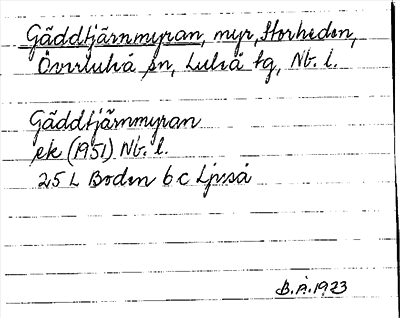 Gäddtjärnmyran, myr, Storheden,
Överluleå sn, Luleå tg, Nb. l.
Gäddtjärnmyran
ek (1951) Nb. l.
25 L Boden 6 c Ljuså
B.Å. 1923